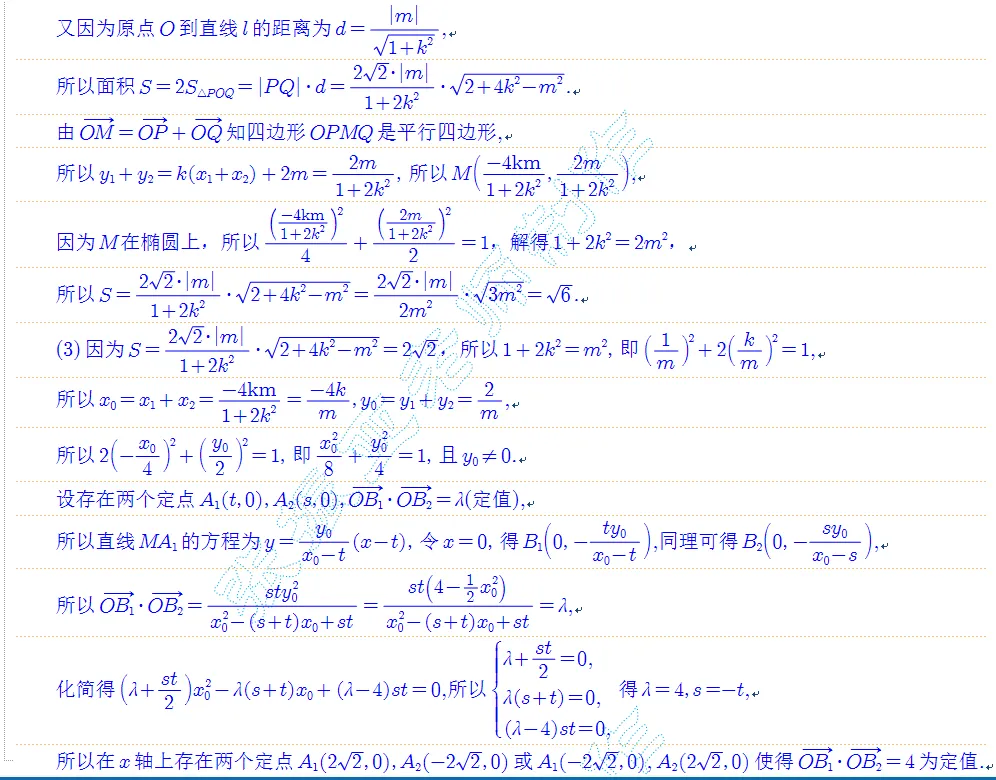 又因为原点 $O$ 到直线 $l$ 的距离为 $d=\frac{|m|}{\sqrt{1+k^2}}$,
所以面积 $S=2S_{\triangle POQ}=|PQ|\cdot d=\frac{2\sqrt{2}\cdot|m|}{1+2k^2}\cdot\sqrt{2+4k^2-m^2}$.
由 $\overrightarrow{OM}=\overrightarrow{OP}+\overrightarrow{OQ}$ 知四边形 $OPMQ$ 是平行四边形,
所以 $y_1+y_2=k(x_1+x_2)+2m=\frac{2m}{1+2k^2}$, 所以 $M\left(\frac{-4\mathrm{km}}{1+2k^2},\frac{2m}{1+2k^2}\right)$,
因为 $M$ 在椭圆上，所以 $\frac{\left(\frac{-4\mathrm{km}}{1+2k^2}\right)^2}{4}+\frac{\left(\frac{2m}{1+2k^2}\right)^2}{2}=1$，解得 $1+2k^2=2m^2$，
所以 $S=\frac{2\sqrt{2}\cdot|m|}{1+2k^2}\cdot\sqrt{2+4k^2-m^2}=\frac{2\sqrt{2}\cdot|m|}{2m^2}\cdot\sqrt{3m^2}=\sqrt{6}$.
(3) 因为 $S=\frac{2\sqrt{2}\cdot|m|}{1+2k^2}\cdot\sqrt{2+4k^2-m^2}=2\sqrt{2}$，所以 $1+2k^2=m^2$, 即 $\left(\frac{1}{m}\right)^2+2\left(\frac{k}{m}\right)^2=1$,
所以 $x_0=x_1+x_2=\frac{-4\mathrm{km}}{1+2k^2}=\frac{-4k}{m}$, $y_0=y_1+y_2=\frac{2}{m}$,
所以 $2\left(-\frac{x_0}{4}\right)^2+\left(\frac{y_0}{2}\right)^2=1$, 即 $\frac{x_0^2}{8}+\frac{y_0^2}{4}=1$, 且 $y_0\neq 0$.
设存在两个定点 $A_1(t,0),A_2(s,0),\overrightarrow{OB_1}\cdot\overrightarrow{OB_2}=\lambda$(定值),
所以直线 $MA_1$ 的方程为 $y=\frac{y_0}{x_0-t}(x-t)$, 令 $x=0$, 得 $B_1\left(0,-\frac{ty_0}{x_0-t}\right)$,同理可得 $B_2\left(0,-\frac{sy_0}{x_0-s}\right)$,
所以 $\overrightarrow{OB_1}\cdot\overrightarrow{OB_2}=\frac{sty_0^2}{x_0^2-(s+t)x_0+st}=\frac{st\left(4-\frac{1}{2}x_0^2\right)}{x_0^2-(s+t)x_0+st}=\lambda$,
化简得 $\left(\lambda+\frac{st}{2}\right)x_0^2-\lambda(s+t)x_0+(\lambda-4)st=0$,所以 $\begin{cases}\lambda+\frac{st}{2}=0,\\ \lambda(s+t)=0,\\ (\lambda-4)st=0,\end{cases}$ 得 $\lambda=4,s=-t$,
所以在 $x$ 轴上存在两个定点 $A_1(2\sqrt{2},0),A_2(-2\sqrt{2},0)$ 或 $A_1(-2\sqrt{2},0),A_2(2\sqrt{2},0)$ 使得 $\overrightarrow{OB_1}\cdot\overrightarrow{OB_2}=4$ 为定值.